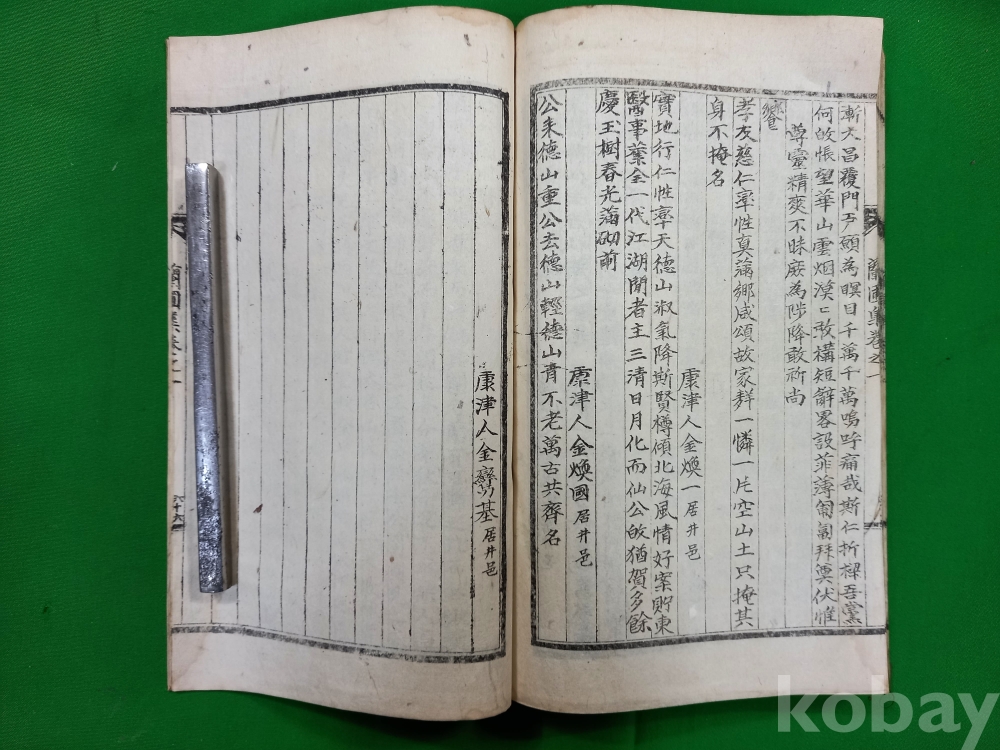 漸大昌覆門丐頭為瞑目千萬千萬嗚呼痛哉斯仁折樑吾黨
何放悵望華山雲烟漠〻敢構短辭畧設菲薄匍匐拜奠伏惟
尊靈精爽不昧庶為陟降敢祈尚
饗
孝友慈仁率性真滿鄉咸頌故家群一憐一片空山土只掩其
身不掩名
康津人金煥一居井邑
寶地行仁性率天德山淑氣降斯賢樽傾北海風情好案貯東
醫事業全一代江湖閒者主三清日月化而仙公故猶賀多餘
慶玉樹春光滿砌前
康津人金煥國居井邑
公来德山重公去德山輕德山青不老萬古共齊名
康津人金基居井邑
集卷之一
六十六
kobay